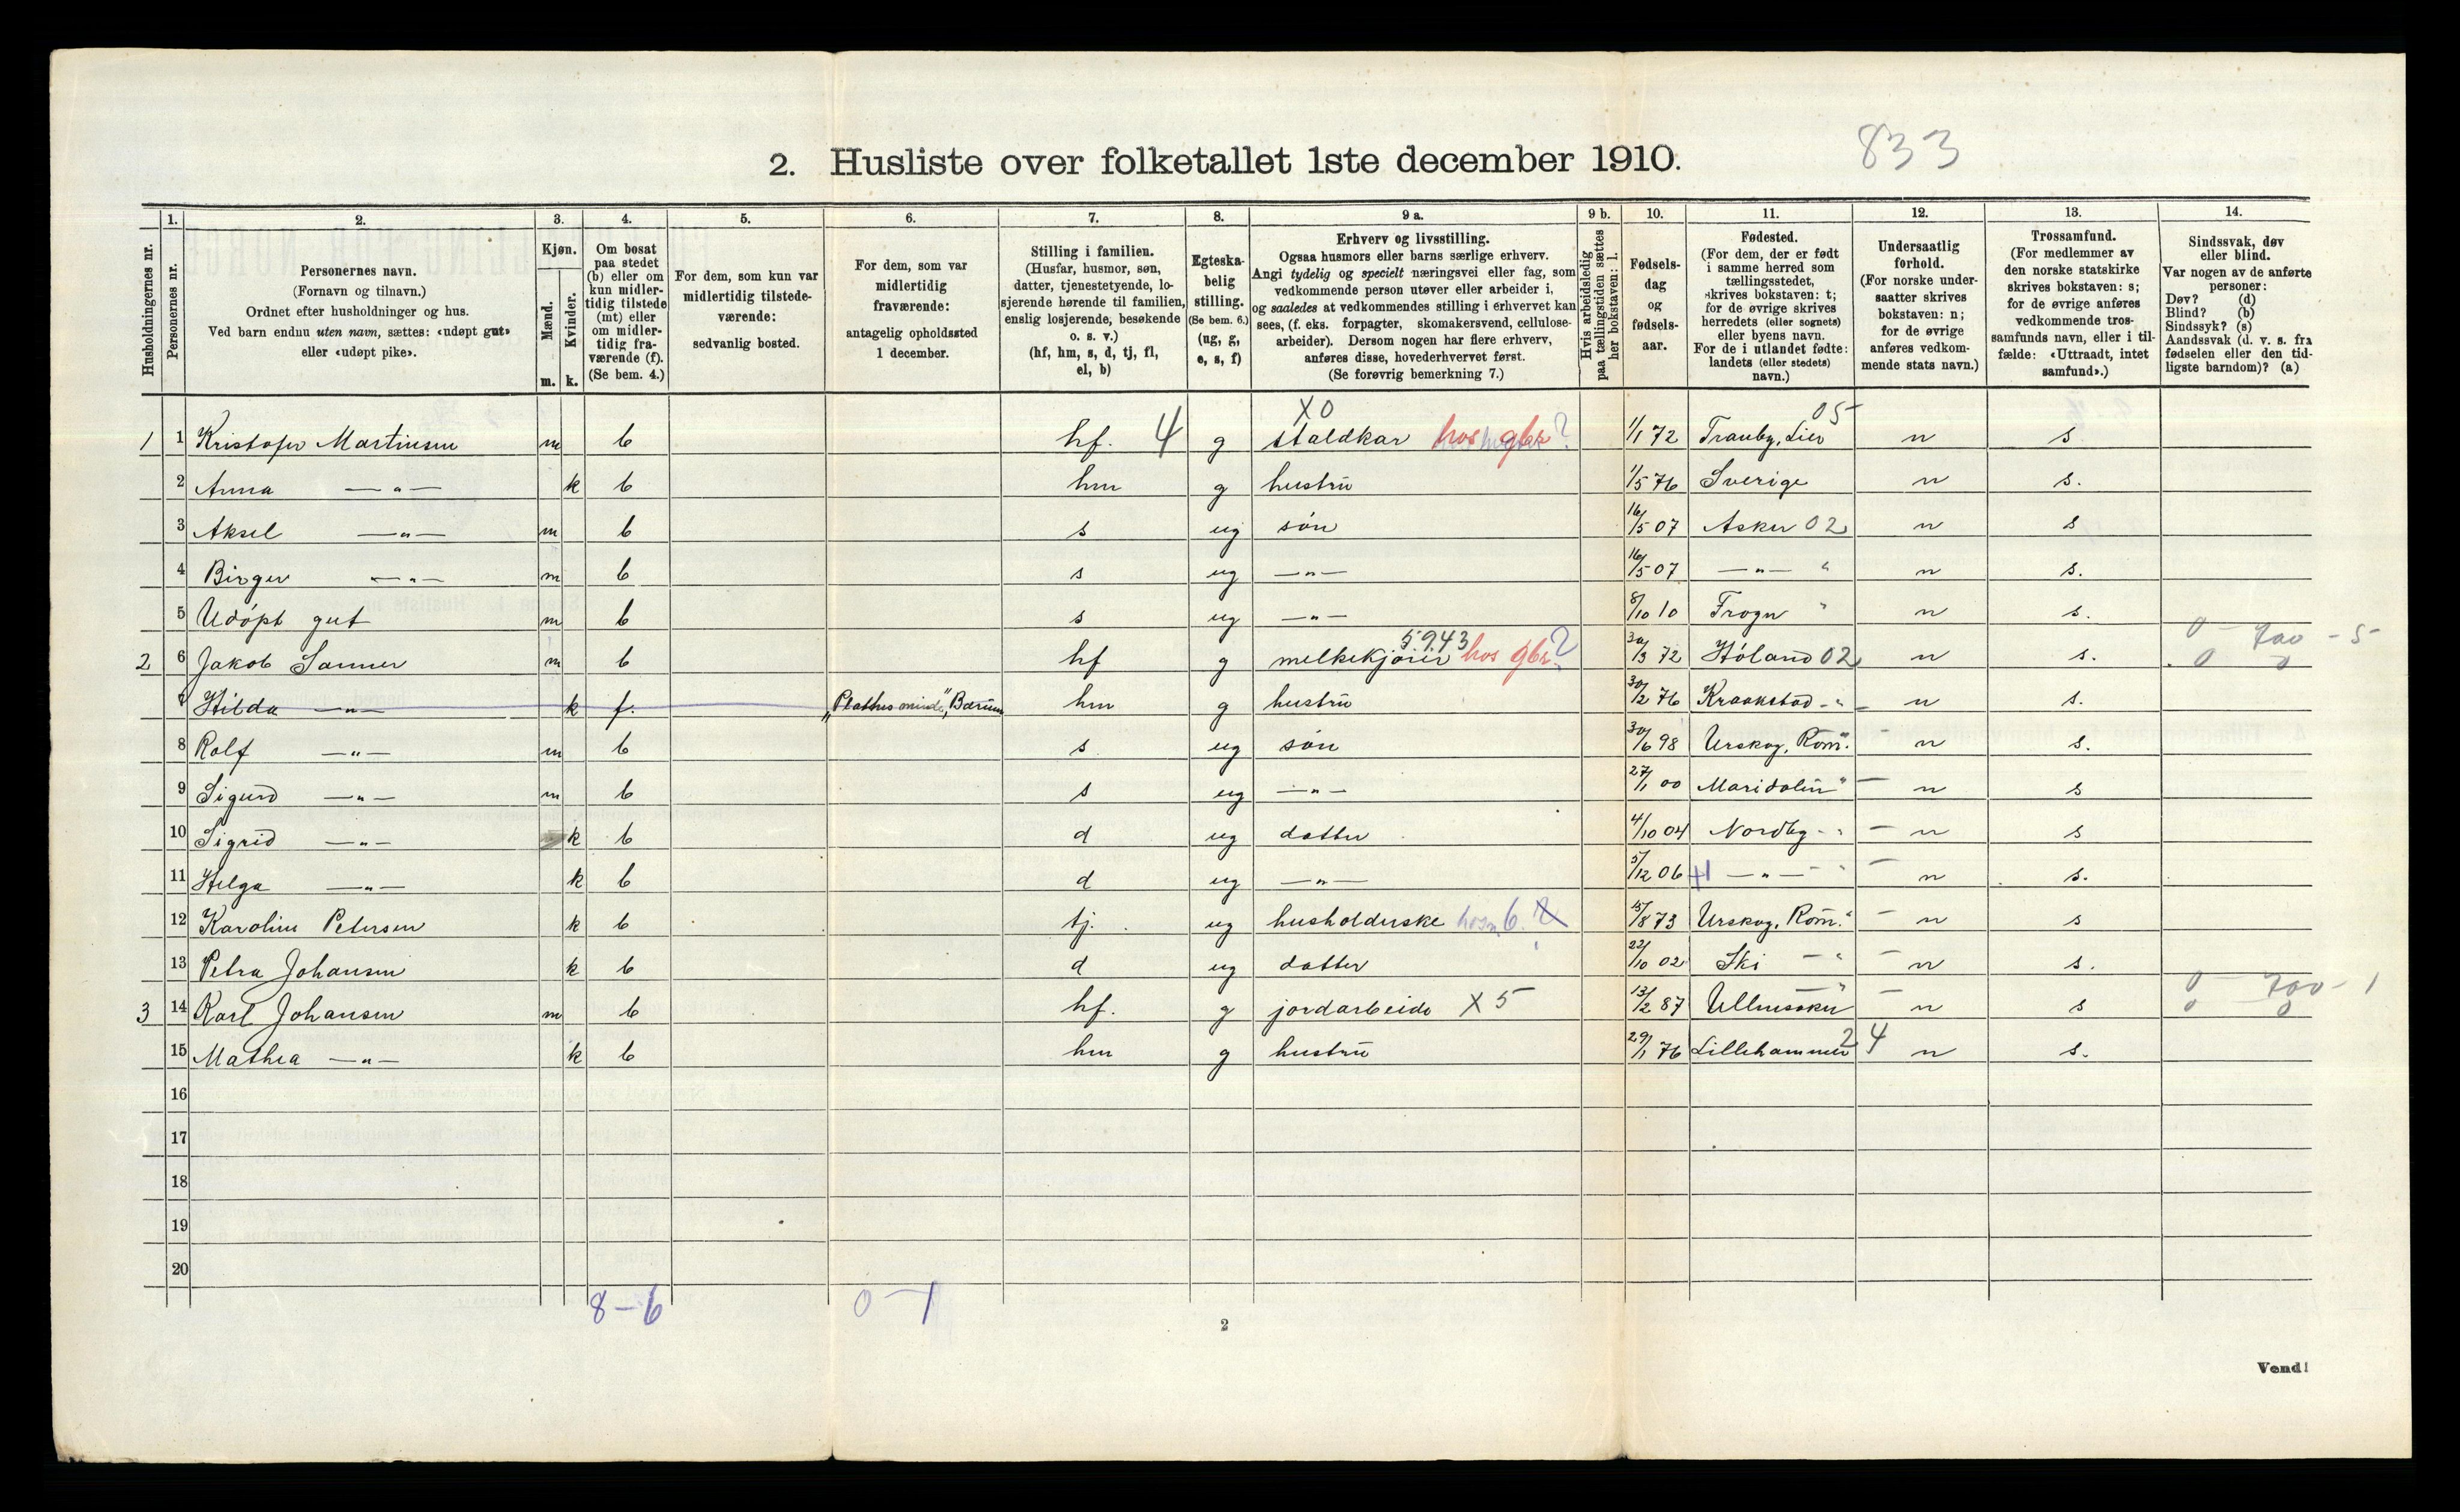 2. Husliste over folketallet 1ste december 1910.
833
Husholdningernes nr.
1.
Personernes nr.
2.
Personernes navn.
(Fornavn og tilnavn.)
Ordnet efter husholdninger og hus.
Ved barn endnu uten navn, sættes: «udøpt gut»
eller «udøpt pike».
3.
Kjøn.
Mænd.
Kvinder.
m. k.
4.
Om bosat
paa stedet
(b) eller om
kun midler-
tidig tilstede
(mt) eller
om midler-
tidig fra-
værende (f).
(Se bem. 4.)
5.
For dem, som kun var
midlertidig tilstede-
værende:
sedvanlig bosted.
6.
For dem, som var
midlertidig
fraværende:
antagelig opholdssted
1 december.
7.
Stilling i familien.
(Husfar, husmor, søn,
datter, tjenestetyende, lo-
sjerende hørende til familien,
enslig losjerende, besøkende
o. s. v.)
(hf, hm, s, d, tj, fl,
el, b)
8.
Egteska-
belig
stilling.
(Se bem. 6.)
(ug, g,
e, s, f)
9 a.
Erhverv og livsstilling.
Ogsaa husmors eller barns særlige erhverv.
Angi tydelig og specielt næringsvei eller fag, som
vedkommende person utøver eller arbeider i,
og saaledes at vedkommendes stilling i erhvervet kan
sees, (f. eks. forpagter, skomakersvend, cellulose-
arbeider). Dersom nogen har flere erhverv,
anføres disse, hovederhvervet først.
(Se forøvrig bemerkning 7.)
9 b.
Hvis arbeidsledig
paa tællingstiden sættes
her bokstaven: l.
10.
Fødsels-
dag
og
fødsels-
aar.
11.
Fødested.
(For dem, der er født
i samme herred som
tællingsstedet,
skrives bokstaven: t;
for de øvrige skrives
herredets (eller sognets)
eller byens navn.
For de i utlandet fødte:
landets (eller stedets)
navn.)
12.
Undersaatlig
forhold.
(For norske under-
saatter skrives
bokstaven: n;
for de øvrige
anføres vedkom-
mende stats navn.)
13.
Trossamfund.
(For medlemmer av
den norske statskirke
skrives bokstaven: s;
for de øvrige anføres
vedkommende tros-
samfunds navn, eller i til-
fælde: «Uttraadt, intet
samfund».)
14.
Sindssvak, døv
eller blind.
Var nogen av de anførte
personer:
Døv? (d)
Blind? (b)
Sindssyk? (s)
Aandssvak (d. v. s. fra
fødselen eller den tid-
ligste barndom)? (a)
X0 05
1 1 Kristofer Martinsen m b hf. 4 g staldkar hos gbr ? 1/1 72 Tranby, Lier n s
2 Anna —"— k b hm g hustru 1/5 76 Sverige n s.
3 Aksel —"— m b s ug søn 16/5 07 Asker 02 n s
4 Birger —"— m b s ug —"— 16/5 07 —"— " n s.
5 Udøpt gut m b s ug —"— 8/10 10 Frogn " n s.
5943 0 700 - 5
2 6 Jakob Sanner m b hf g melkekjører hos gbr. ? 30/3 72 Høland 02 n s. 0 0
7 Hilda —"— k f. „Plathes minde", Bærum hm g hustru 30/2 76 Kraakstad -"- n s.
8 Rolf —"— m b s. ug søn 30/6 98 Urskog, Rom. " n s.
9 Sigurd —"— m b s ug —"— 27/1 00 Maridalen " n s
10 Sigrid —"— k b d ug datter 4/10 04 Nordby -" n s
11 Helga —"— k b d ug —"— 5/12 06 —"— " n s.
12 Karoline Petersen k b tj. ug husholderske 15/8 73 Urskog, Rom. " n s
13 Petra Johansen k b d ug datter 22/10 02 Ski -" n s.
0 700 - 1
3 14 Karl Johansen m b hf. g jordarbeide X 5 13/2 87 Ullensaker n s 0 0
15 Mathea —"— k b hm g hustru 29/1 76 Lillehammer 24 n s.
16
17
18
19
20
8 - 6 0 - 1
2
Vend!